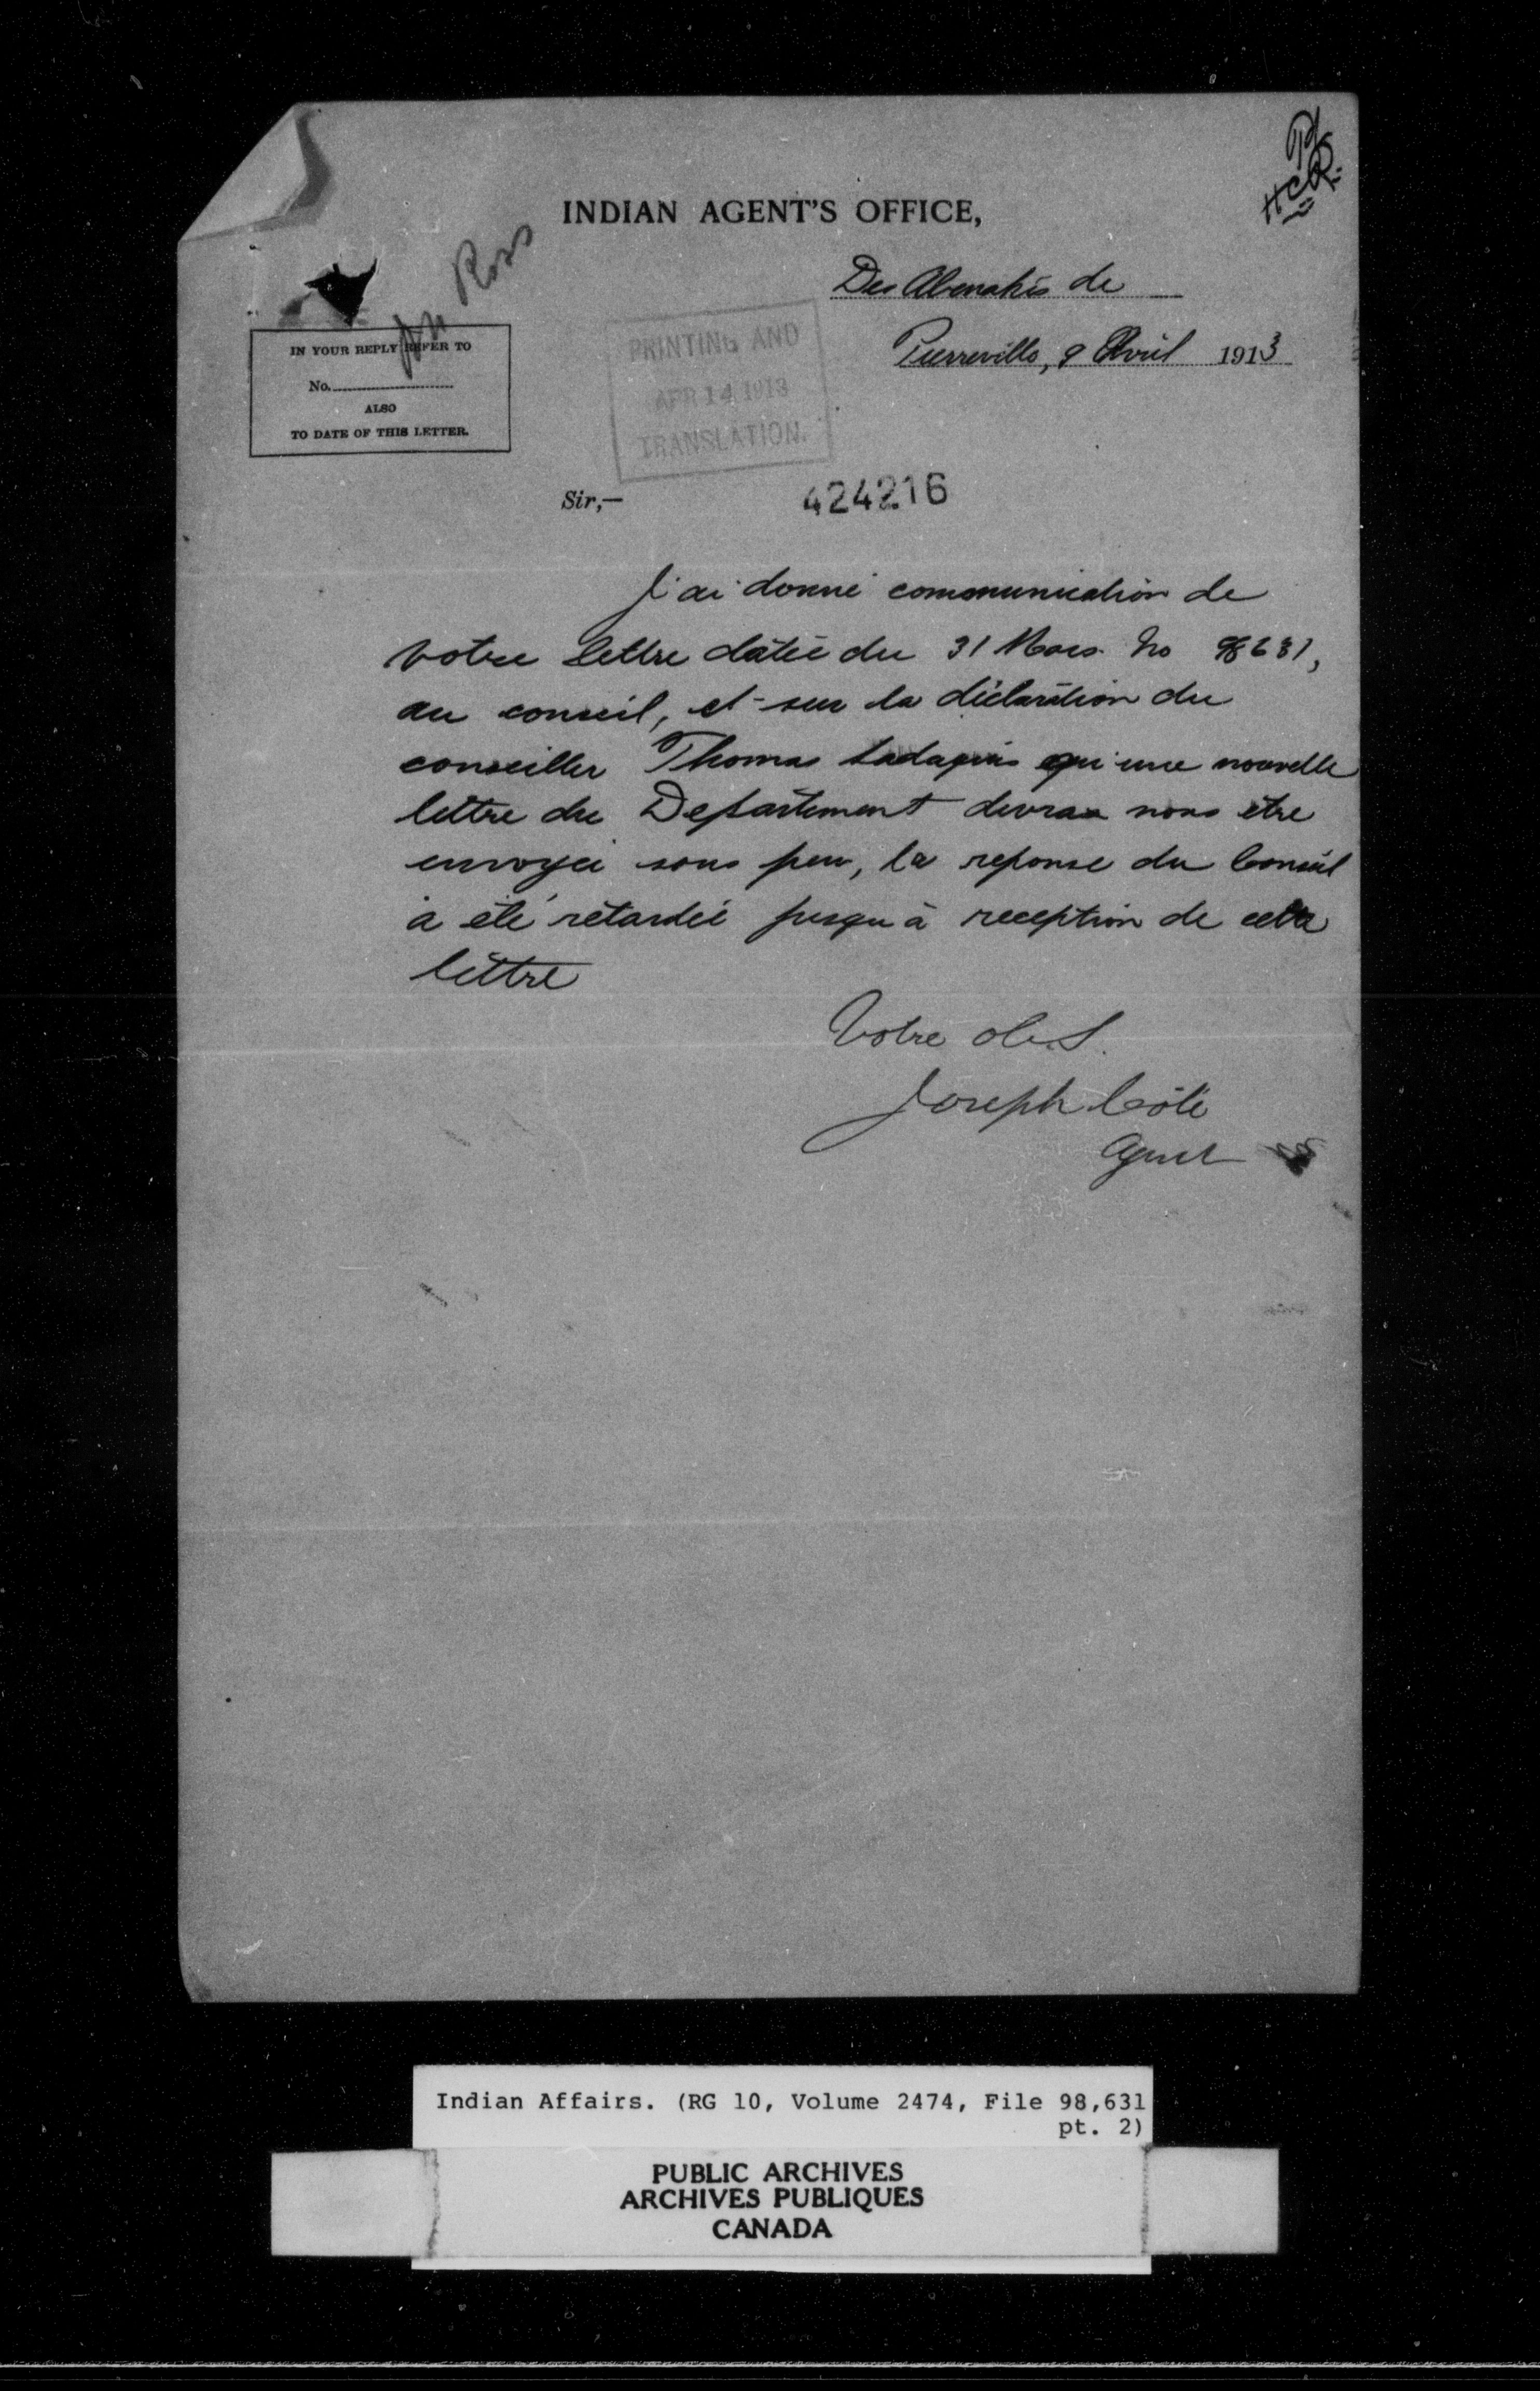 INDIAN AGENT'S OFFICE,
Mr Ross
Des Abenakis de
Pierreville, 9 Avril 1913
IN YOUR REPLY REFER TO
No.
ALSO
TO DATE OF THIS LETTER.
PRINTING AND
APR 14 1913
TRANSLATION.
Sir,—
424216
J'ai donné communication de
votre lettre datée du 31 Mars No 98631,
au conseil, et sur la déclaration du
conseiller Thomas qu'une nouvelle
lettre du Departement devra nous être
envoyée sous peu, la reponse du Conseil
a été retardée jusqu'à reception de cette
lettre
Votre ob. S.
Joseph Côté
Agent
Indian Affairs. (RG 10, Volume 2474, File 98,631
pt. 2)
PUBLIC ARCHIVES
ARCHIVES PUBLIQUES
CANADA